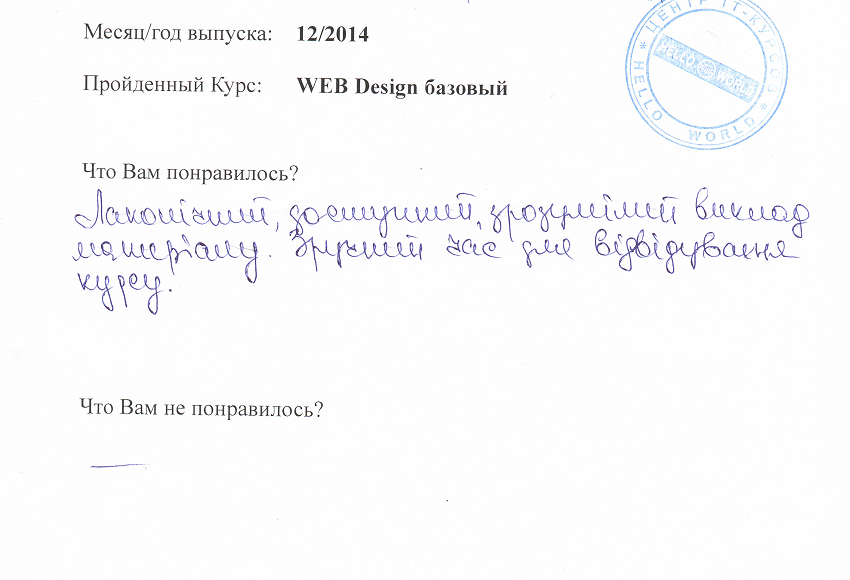 Месяц/год выпуска: 12/2014
Пройденный Курс: WEB Design базовый
ЦЕНТР IT-КУРСОВ * HELLO WORLD *
HELLO WORLD
Что Вам понравилось?
Лаконічний, доступний, зрозумілий виклад
матеріалу. Зручний час для відвідування
курсу.
Что Вам не понравилось?